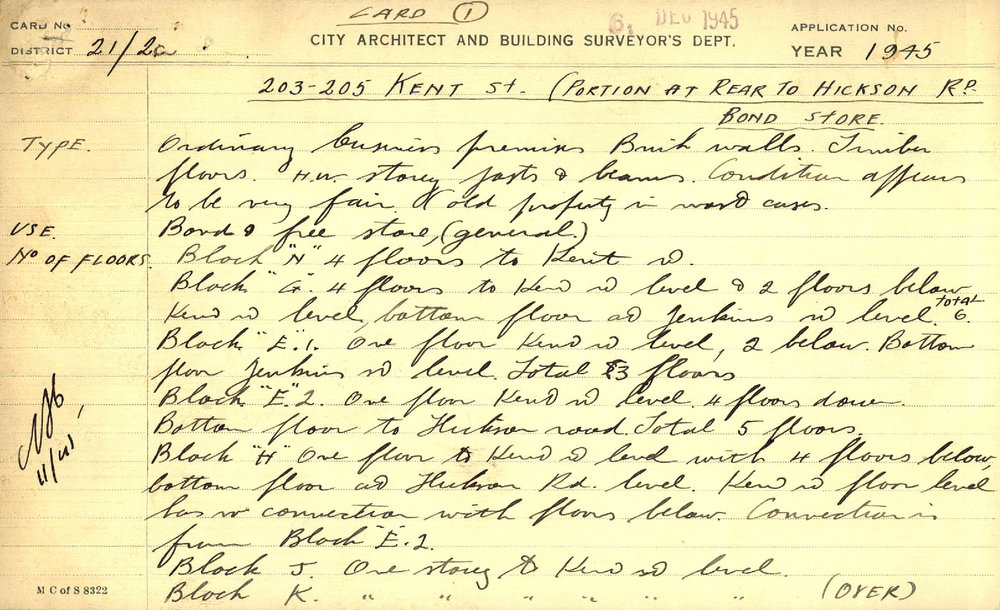 CARD ①
6. DEC 1945
CARD No
DISTRICT 21/2
CITY ARCHITECT AND BUILDING SURVEYOR'S DEPT.
APPLICATION No.
YEAR 1945
203-205 KENT St. (PORTION AT REAR TO HICKSON RD.
BOND STORE.
TYPE. Ordinary business premises Brick walls. Timber
floors. H.W. storey posts & beams. Condition appears
to be very fair. Of old property in most cases.
USE. Bond & free store, (general.)
No OF FLOORS. Block "N" 4 floors to Kent St.
Block "G". 4 floors to Kent St level & 2 floors below
Kent St level, bottom floor at Jenkins St level. TOTAL 6.
Block "E".1. One floor Kent St level, 2 below. Bottom
floor Jenkins St level. Total 3 floors
Block "E".2. One floor Kent St level. 4 floors down.
Bottom floor to Hickson road. Total 5 floors.
Block "H" One floor to Kent St level with 4 floors below,
bottom floor at Hickson Rd. level. Kent St floor level
has no connection with floors below. Connection is
from Block "E.2.
Block J. One storey to Kent St level.
Block K. " " " " " "
(OVER)
11/41
M C of S 8322